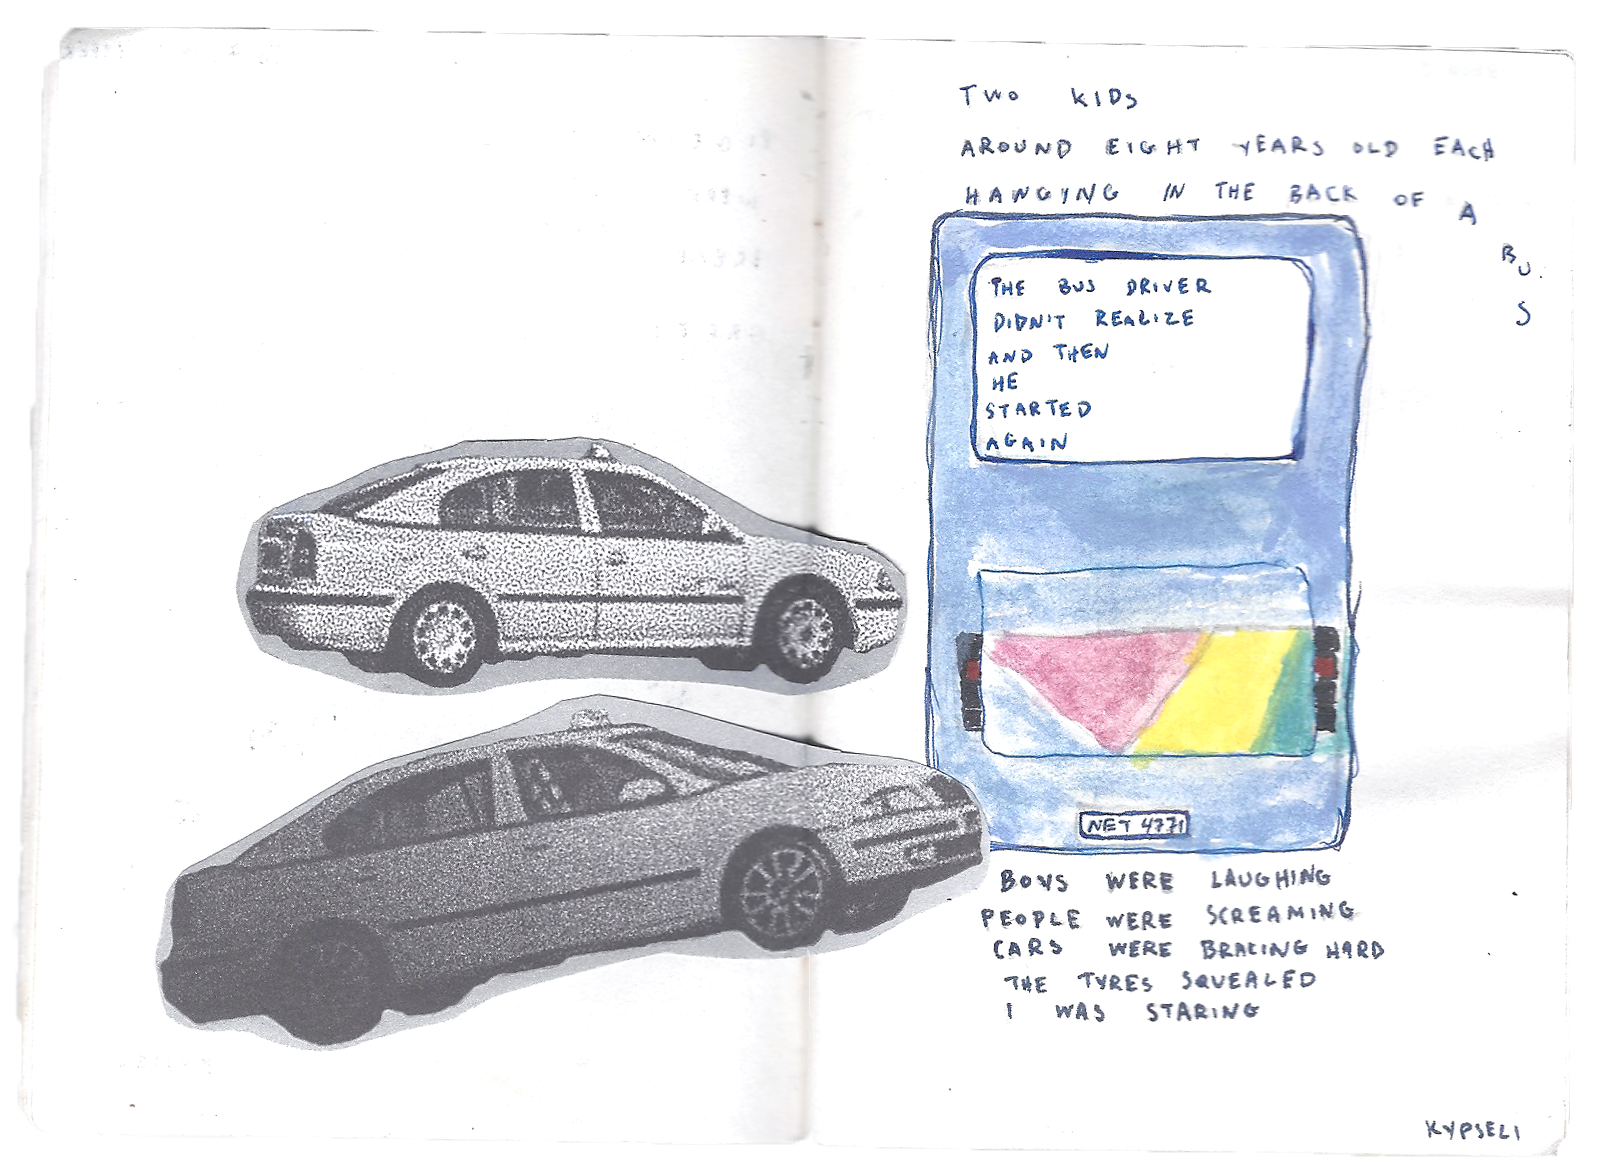 TWO KIDS
AROUND EIGHT YEARS OLD EACH
HANGING IN THE BACK OF A BUS
THE BUS DRIVER
DIDN'T REALIZE
AND THEN
HE
STARTED
AGAIN
NET 4771
BOYS WERE LAUGHING
PEOPLE WERE SCREAMING
CARS WERE BRACING HARD
THE TYRES SQUEALED
I WAS STARING
KYPSELI